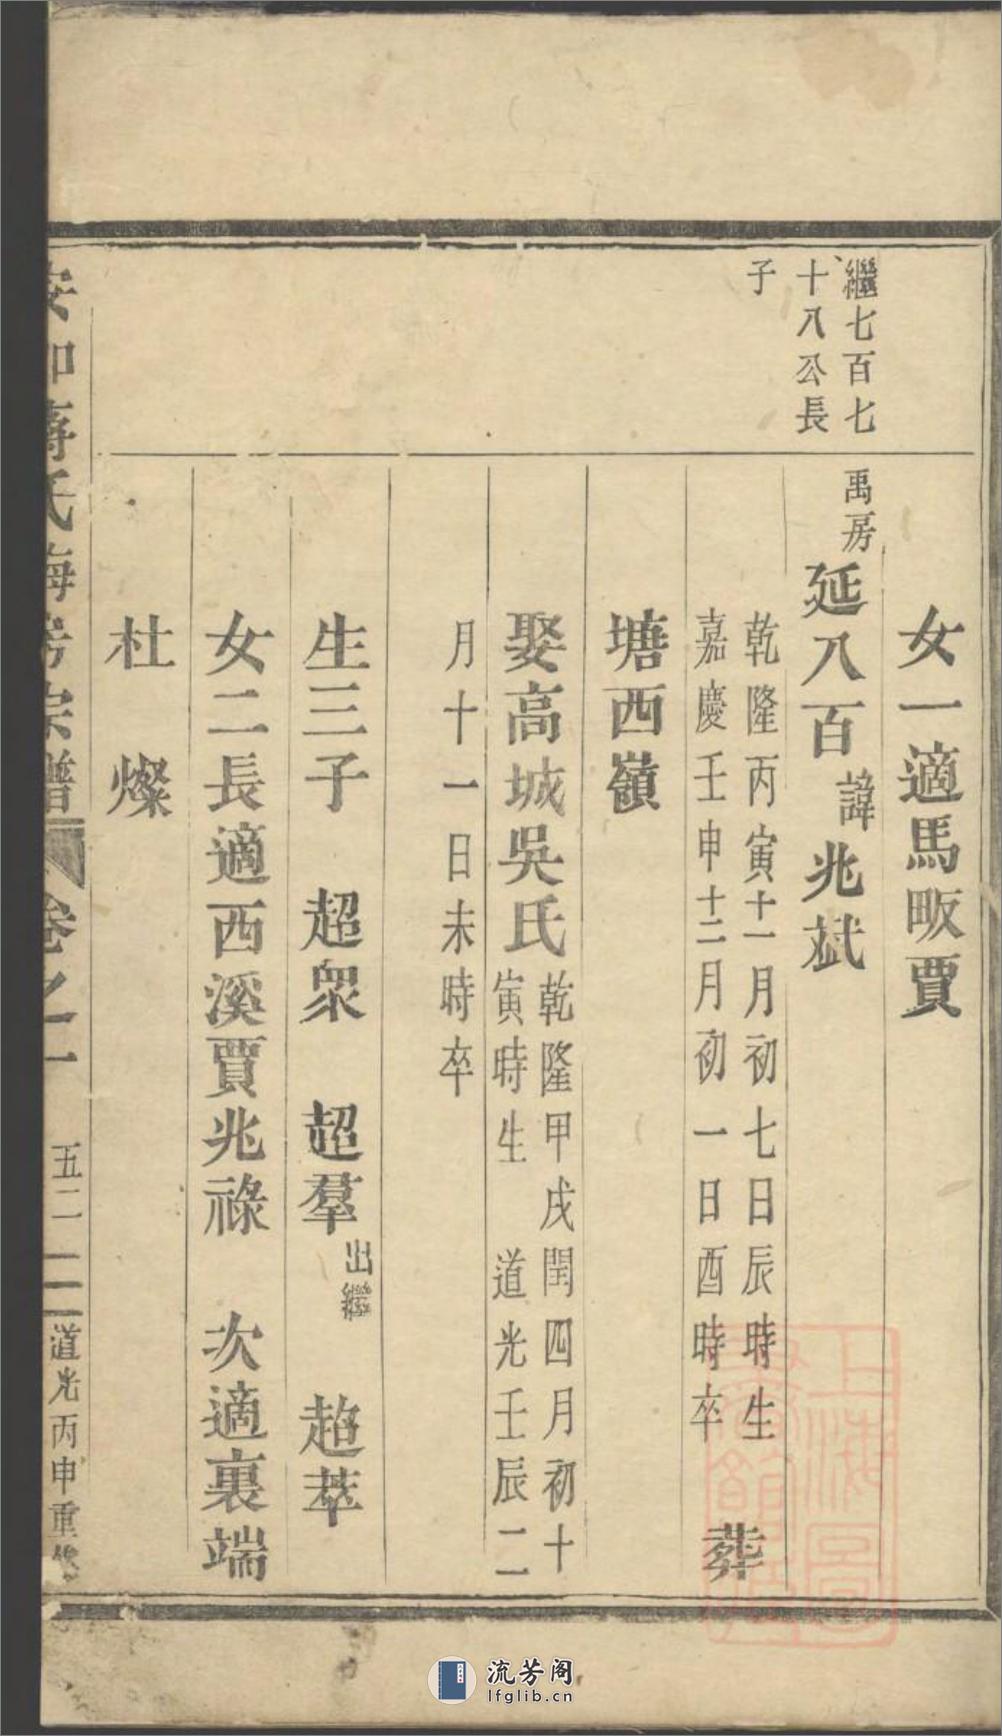 女一適馬畈賈
繼七百七
十八公長
子
禹房
延八百諱兆斌
乾隆丙寅十一月初七日辰時生
嘉慶壬申十二月初一日酉時卒
葬
塘西嶺
娶高城吳氏
乾隆甲戌閏四月初十
寅時生 道光壬辰二
月十一日未時卒
生三子 超衆 超羣出繼 超萃
女二長適西溪賈兆祿 次適裏端
杜燦
蔣氏梅房宗譜 卷之一 五二 道光丙申重修
上海圖書館藏
流芳阁
lfglib.cn